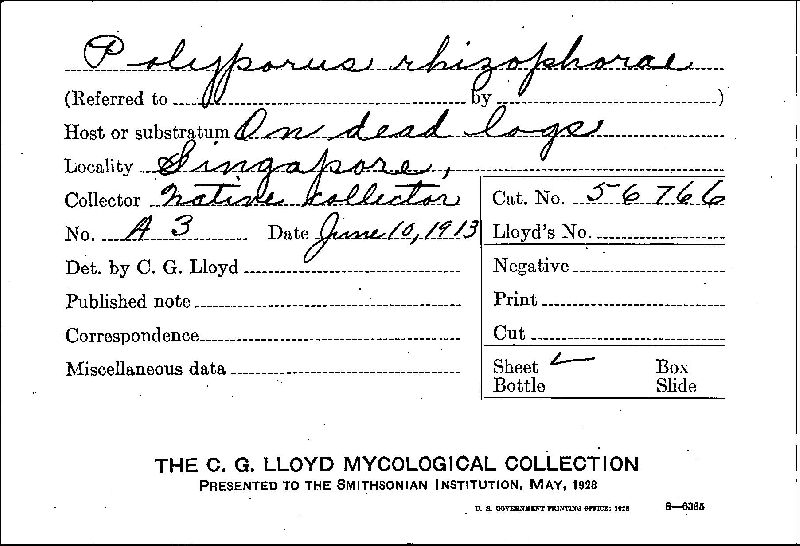 Polyporus rhizophorae
(Referred to by )
Host or substratum On dead logs
Locality Singapore,
Collector Native collector
Cat. No. 56766
No. A 3 Date June 10, 1913
Lloyd's No.
Det. by C. G. Lloyd
Negative
Published note
Print
Correspondence
Cut
Miscellaneous data
Sheet ✓ Box
Bottle Slide
THE C. G. LLOYD MYCOLOGICAL COLLECTION
PRESENTED TO THE SMITHSONIAN INSTITUTION, MAY, 1928
U. S. GOVERNMENT PRINTING OFFICE: 1928 8—6385